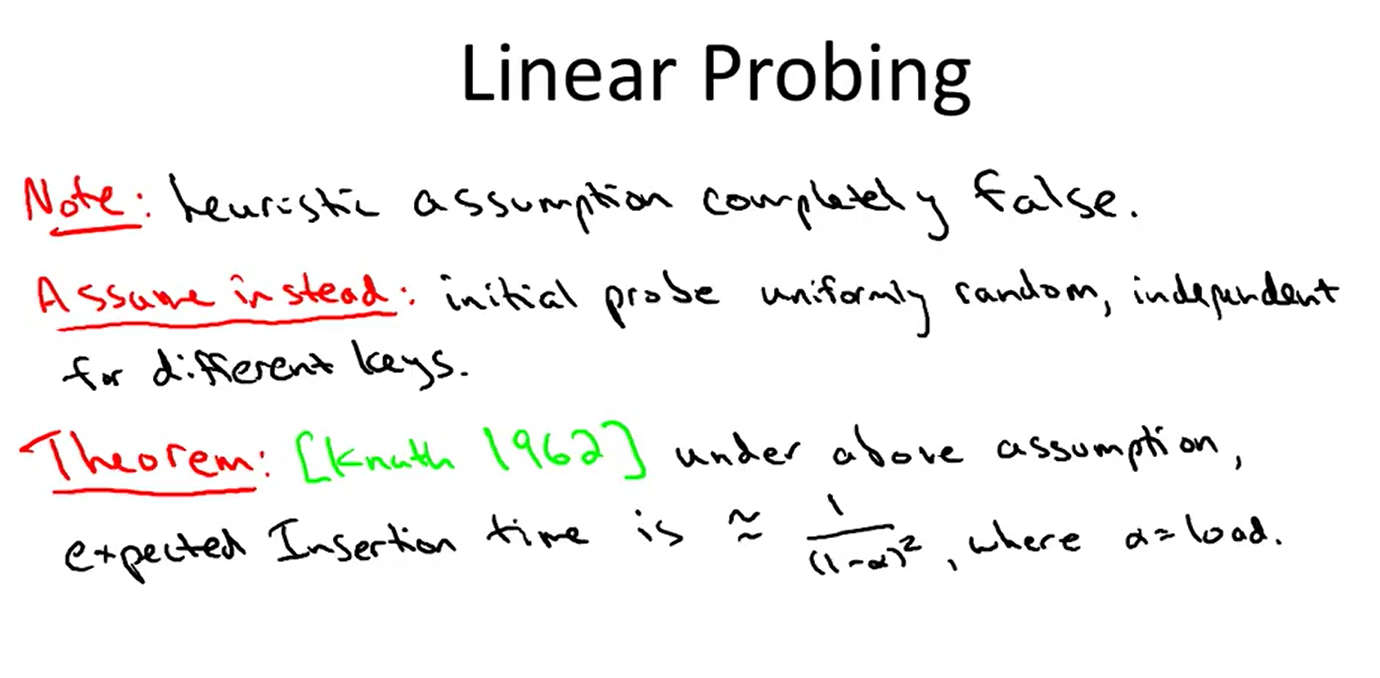 Linear Probing
Note: heuristic assumption completely false.
Assume instead: initial probe uniformly random, independent
for different keys.
Theorem: [Knuth 1962] under above assumption,
expected Insertion time is ≈ 1/(1-α)², where α = load.